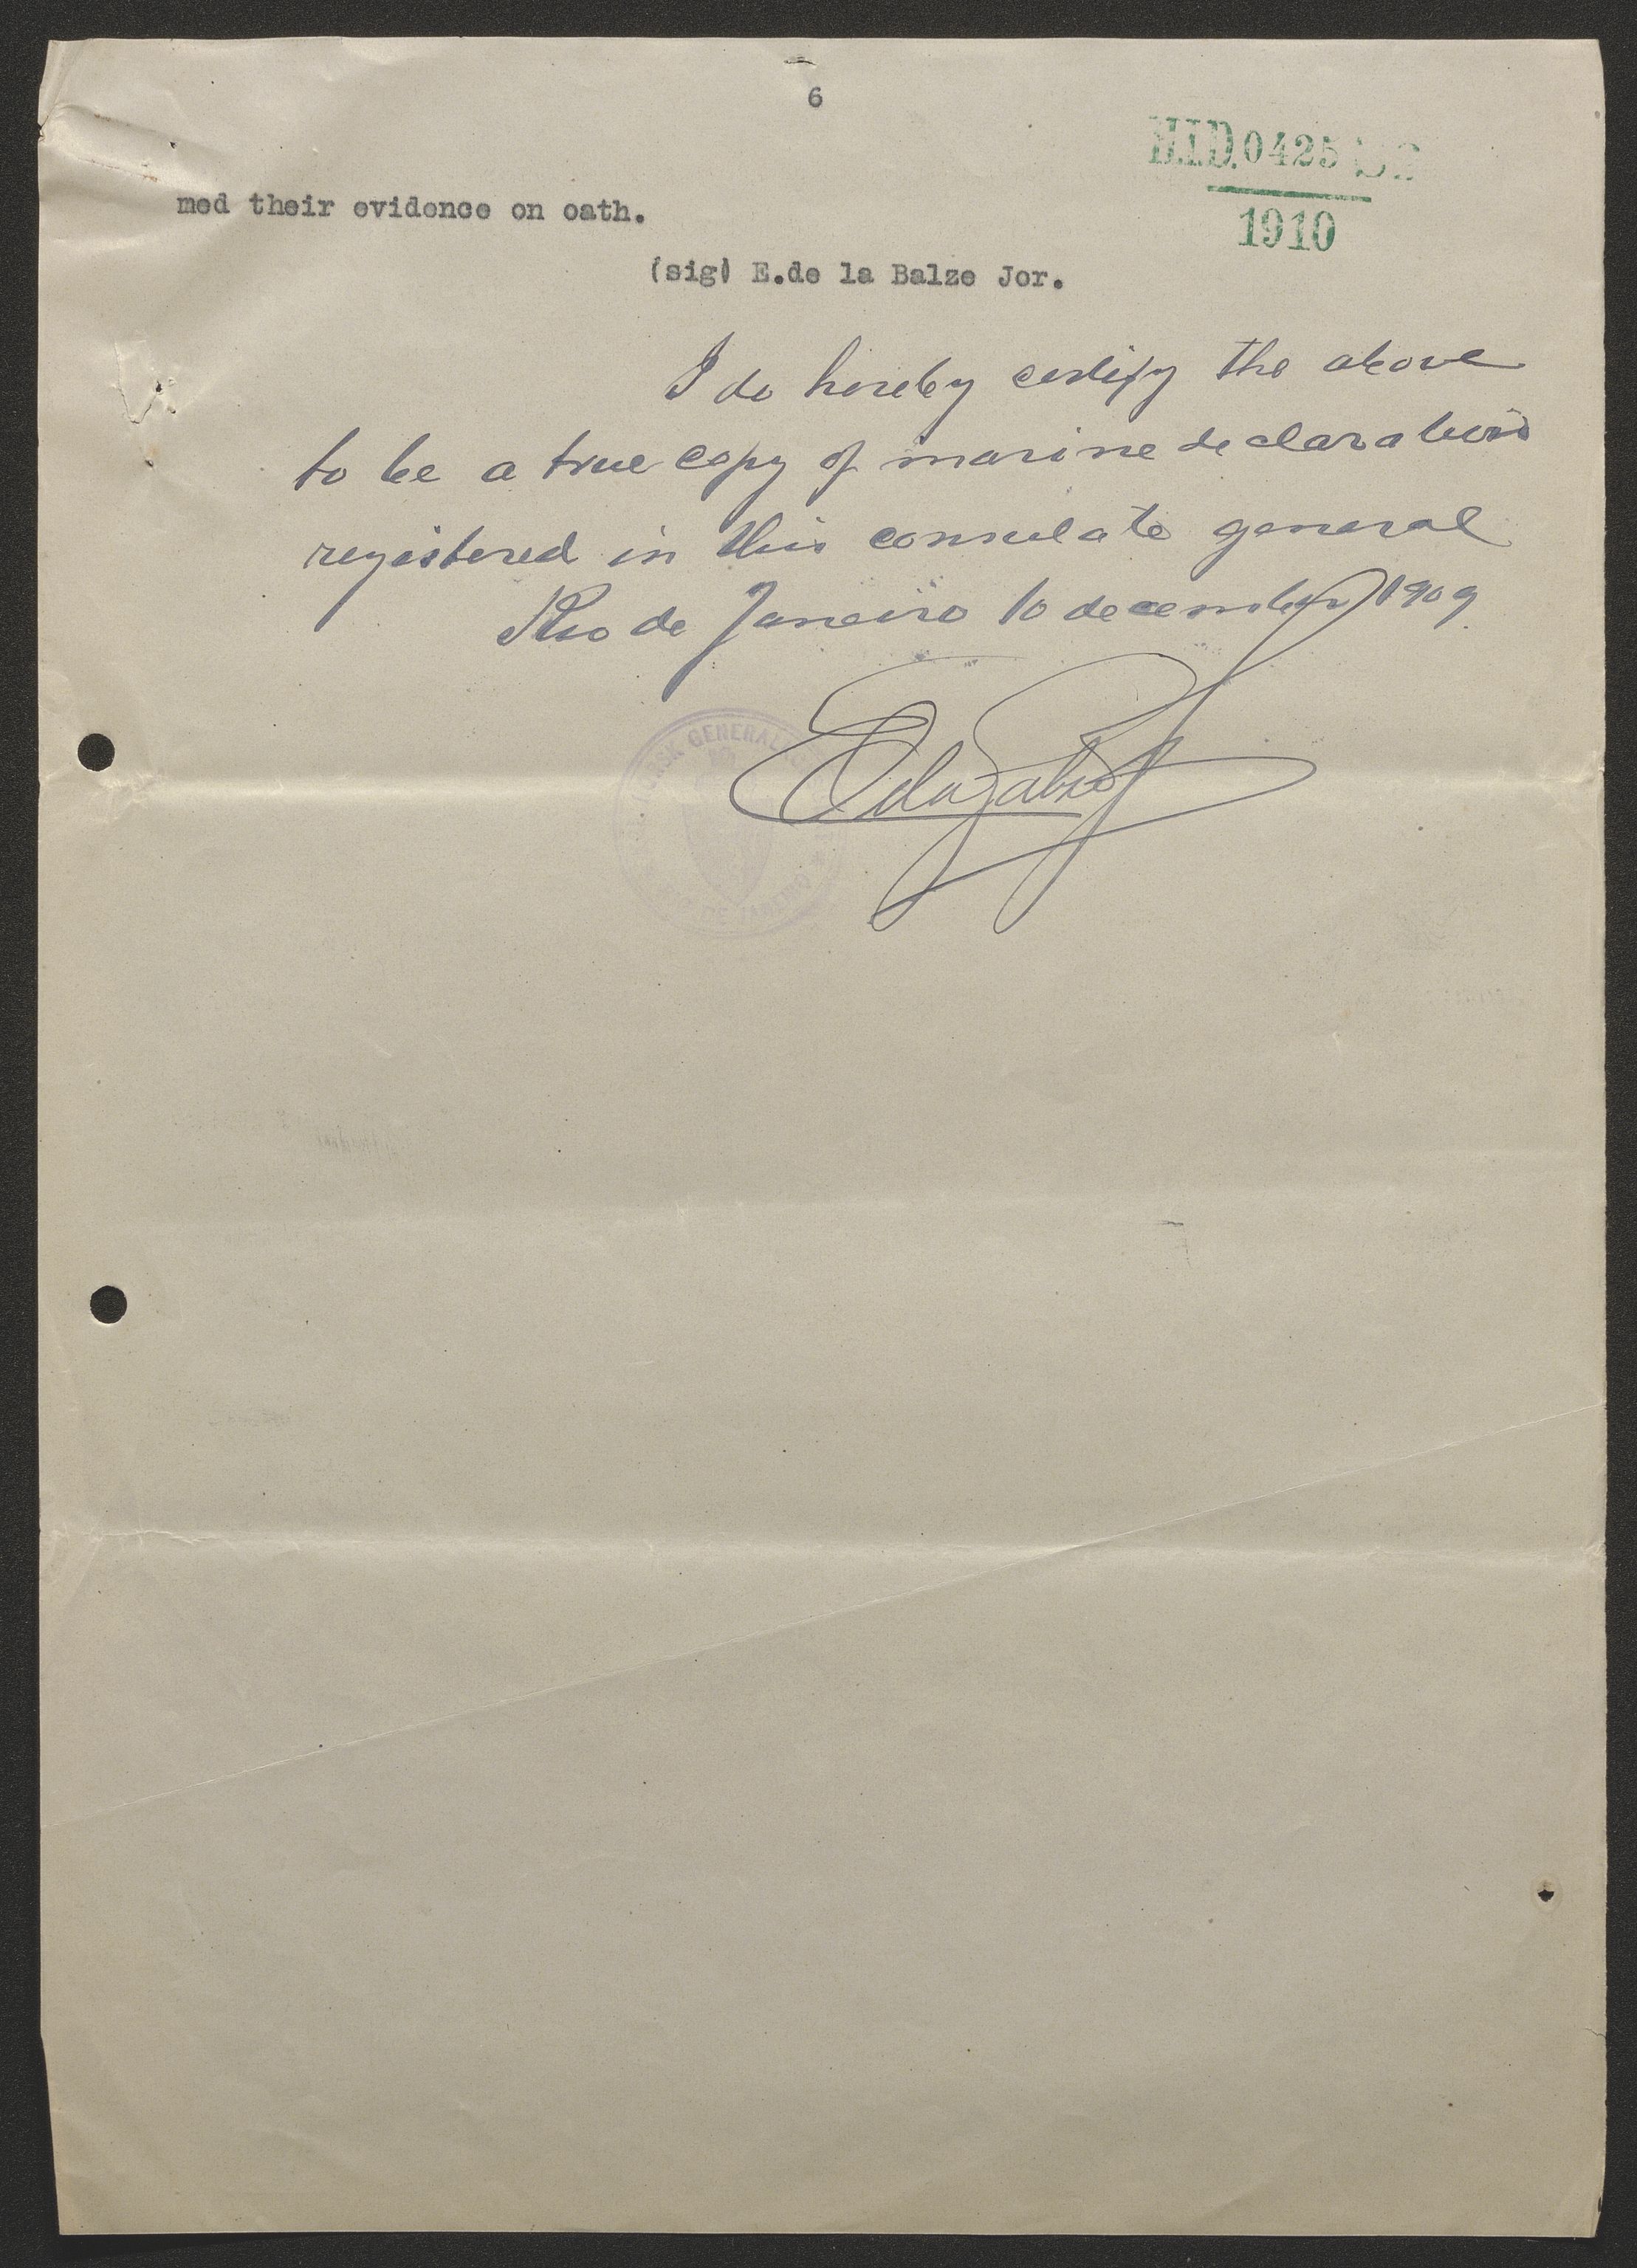 6
H.I.D. 0425
1910
med their evidence on oath.
(sig) E.de la Balze Jor.
I do hereby certify the above
to be a true copy of marine declaration
registered in this consulate general
Rio de Janeiro 10 december 1909
EdelaBalze
NORSK GENERAL
RIO DE JANEIRO